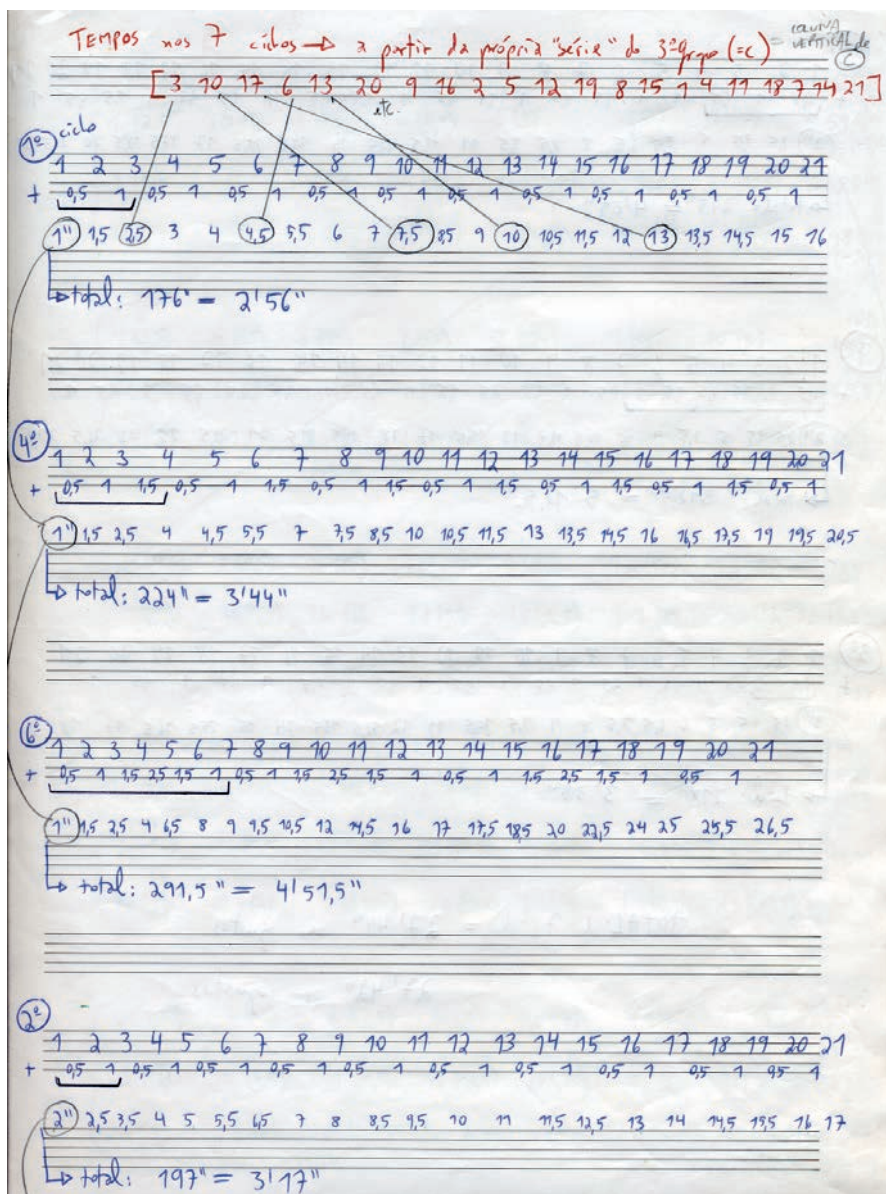 TEMPOS nos 7 ciclos → a partir da própria "série" do 3º grupo (=C)
= COLUNA VERTICAL de C
[3 10 17 6 13 20 9 16 2 5 12 19 8 15 1 4 11 18 7 14 21]
etc.
1º ciclo
1 2 3 4 5 6 7 8 9 10 11 12 13 14 15 16 17 18 19 20 21
+ 0,5 1 0,5 1 0,5 1 0,5 1 0,5 1 0,5 1 0,5 1 0,5 1 0,5 1 0,5 1
1" 1,5 2,5 3 4 4,5 5,5 6 7 7,5 8,5 9 10 10,5 11,5 12 13 13,5 14,5 15 16
↳ total: 176" = 2'56"
4º
1 2 3 4 5 6 7 8 9 10 11 12 13 14 15 16 17 18 19 20 21
+ 0,5 1 1,5 0,5 1 1,5 0,5 1 1,5 0,5 1 1,5 0,5 1 1,5 0,5 1 1,5 0,5 1
1" 1,5 2,5 4 4,5 5,5 7 7,5 8,5 10 10,5 11,5 13 13,5 14,5 16 16,5 17,5 19 19,5 20,5
↳ total: 224" = 3'44"
6º
1 2 3 4 5 6 7 8 9 10 11 12 13 14 15 16 17 18 19 20 21
+ 0,5 1 1,5 2,5 1,5 1 0,5 1 1,5 2,5 1,5 1 0,5 1 1,5 2,5 1,5 1 0,5 1
1" 1,5 2,5 4 6,5 8 9 9,5 10,5 12 14,5 16 17 17,5 18,5 20 22,5 24 25 25,5 26,5
↳ total: 291,5" = 4'51,5"
2º
1 2 3 4 5 6 7 8 9 10 11 12 13 14 15 16 17 18 19 20 21
+ 0,5 1 0,5 1 0,5 1 0,5 1 0,5 1 0,5 1 0,5 1 0,5 1 0,5 1 0,5 1
2" 2,5 3,5 4 5 5,5 6,5 7 8 8,5 9,5 10 11 11,5 12,5 13 14 14,5 15,5 16 17
↳ total: 197" = 3'17"